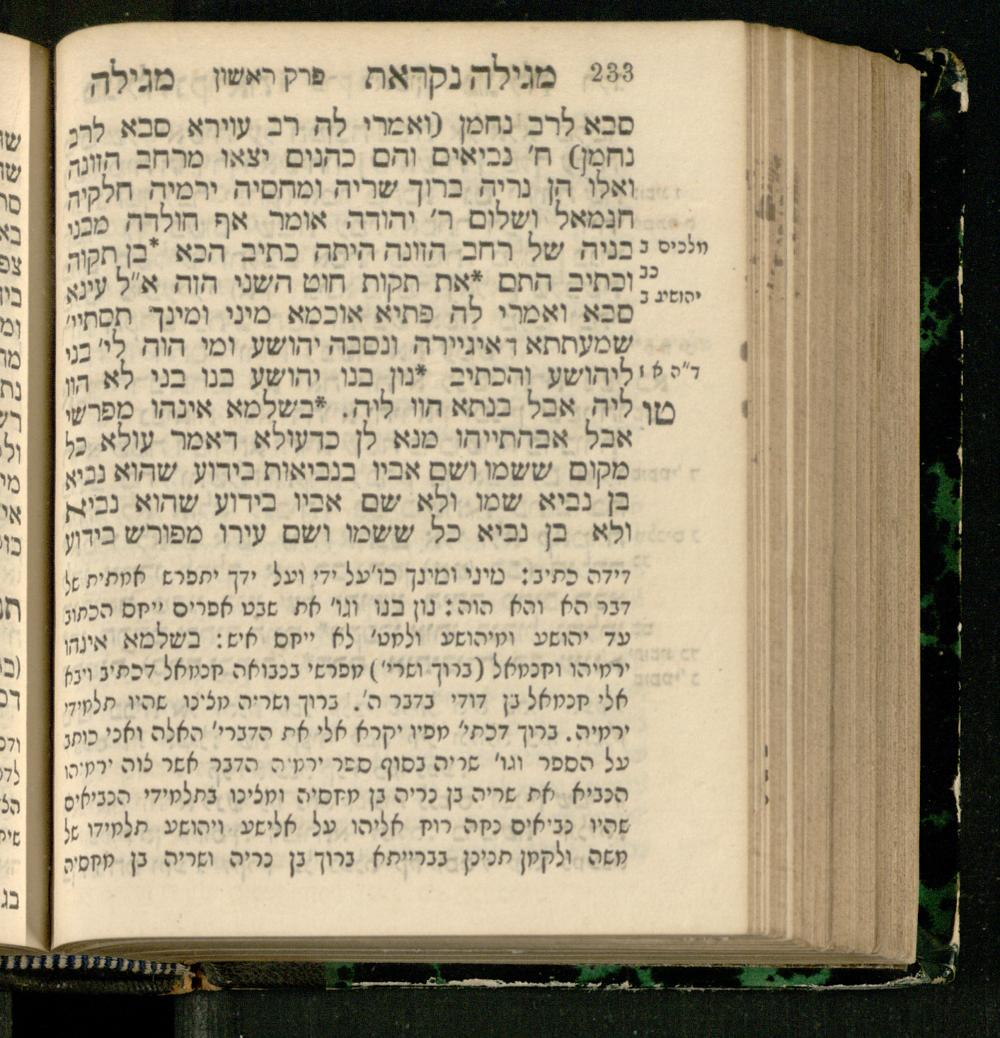 233 מגילה נקראת פרק ראשון מגילה
סבא לרב נחמן (ואמרי לה רב עוירא סבא לרב
נחמן) ח' נביאים והם כהנים יצאו מרחב הזונה
ואלו הן נריה ברוך שריה ומחסיה ירמיה חלקיה
חנמאל ושלום ר' יהודה אומר אף חולדה מבני
מלכים ב
בניה של רחב הזונה היתה כתיב הכא *בן תקוה
כב
וכתיב התם *את תקות חוט השני הזה א"ל עינא
יהושע ב
סבא ואמרי לה פתיא אוכמא מיני ומינך תסתיי'
שמעתתא דאיגיירה ונסבה יהושע ומי הוה לי' בני
ד"ה א ז
ליהושע והכתיב *נון בנו יהושע בנו בני לא הוו
טו
ליה אבל בנתא הוו ליה. *בשלמא אינהו מפרשי
אבל אבהתייהו מנא לן כדעולא דאמר עולא כל
מקום ששמו ושם אביו בנביאות בידוע שהוא נביא
בן נביא שמו ולא שם אביו בידוע שהוא נביא
ולא בן נביא כל ששמו ושם עירו מפורש בידוע
דידה כתיב: מיני ומינך כו' על ידי ועל ידך יתפרש אמתית של
דבר הא והא הוה: נון בנו וגו' את שבט אפרים ייחס הכתוב
עד יהושע ומיהושע ולמט' לא ייחס איש: בשלמא אינהו
ירמיהו וחנמאל (ברוך ושרי') מפרשי בנבואה חנמאל דכתיב ויבא
אלי חנמאל בן דודי בדבר ה'. ברוך ושריה מצינו שהיו תלמידי
ירמיה. ברוך דכתי' מפיו יקרא אלי את הדברי' האלה ואני כותב
על הספר וגו' שריה בסוף ספר ירמיה הדבר אשר צוה ירמיהו
הנביא את שריה בן נריה בן מחסיה ומצינו בתלמידי הנביאים
שהיו נביאים נחה רוח אליהו על אלישע ויהושע תלמידו של
משה ולקמן תנינן בברייתא ברוך בן נריה ושריה בן מחסיה